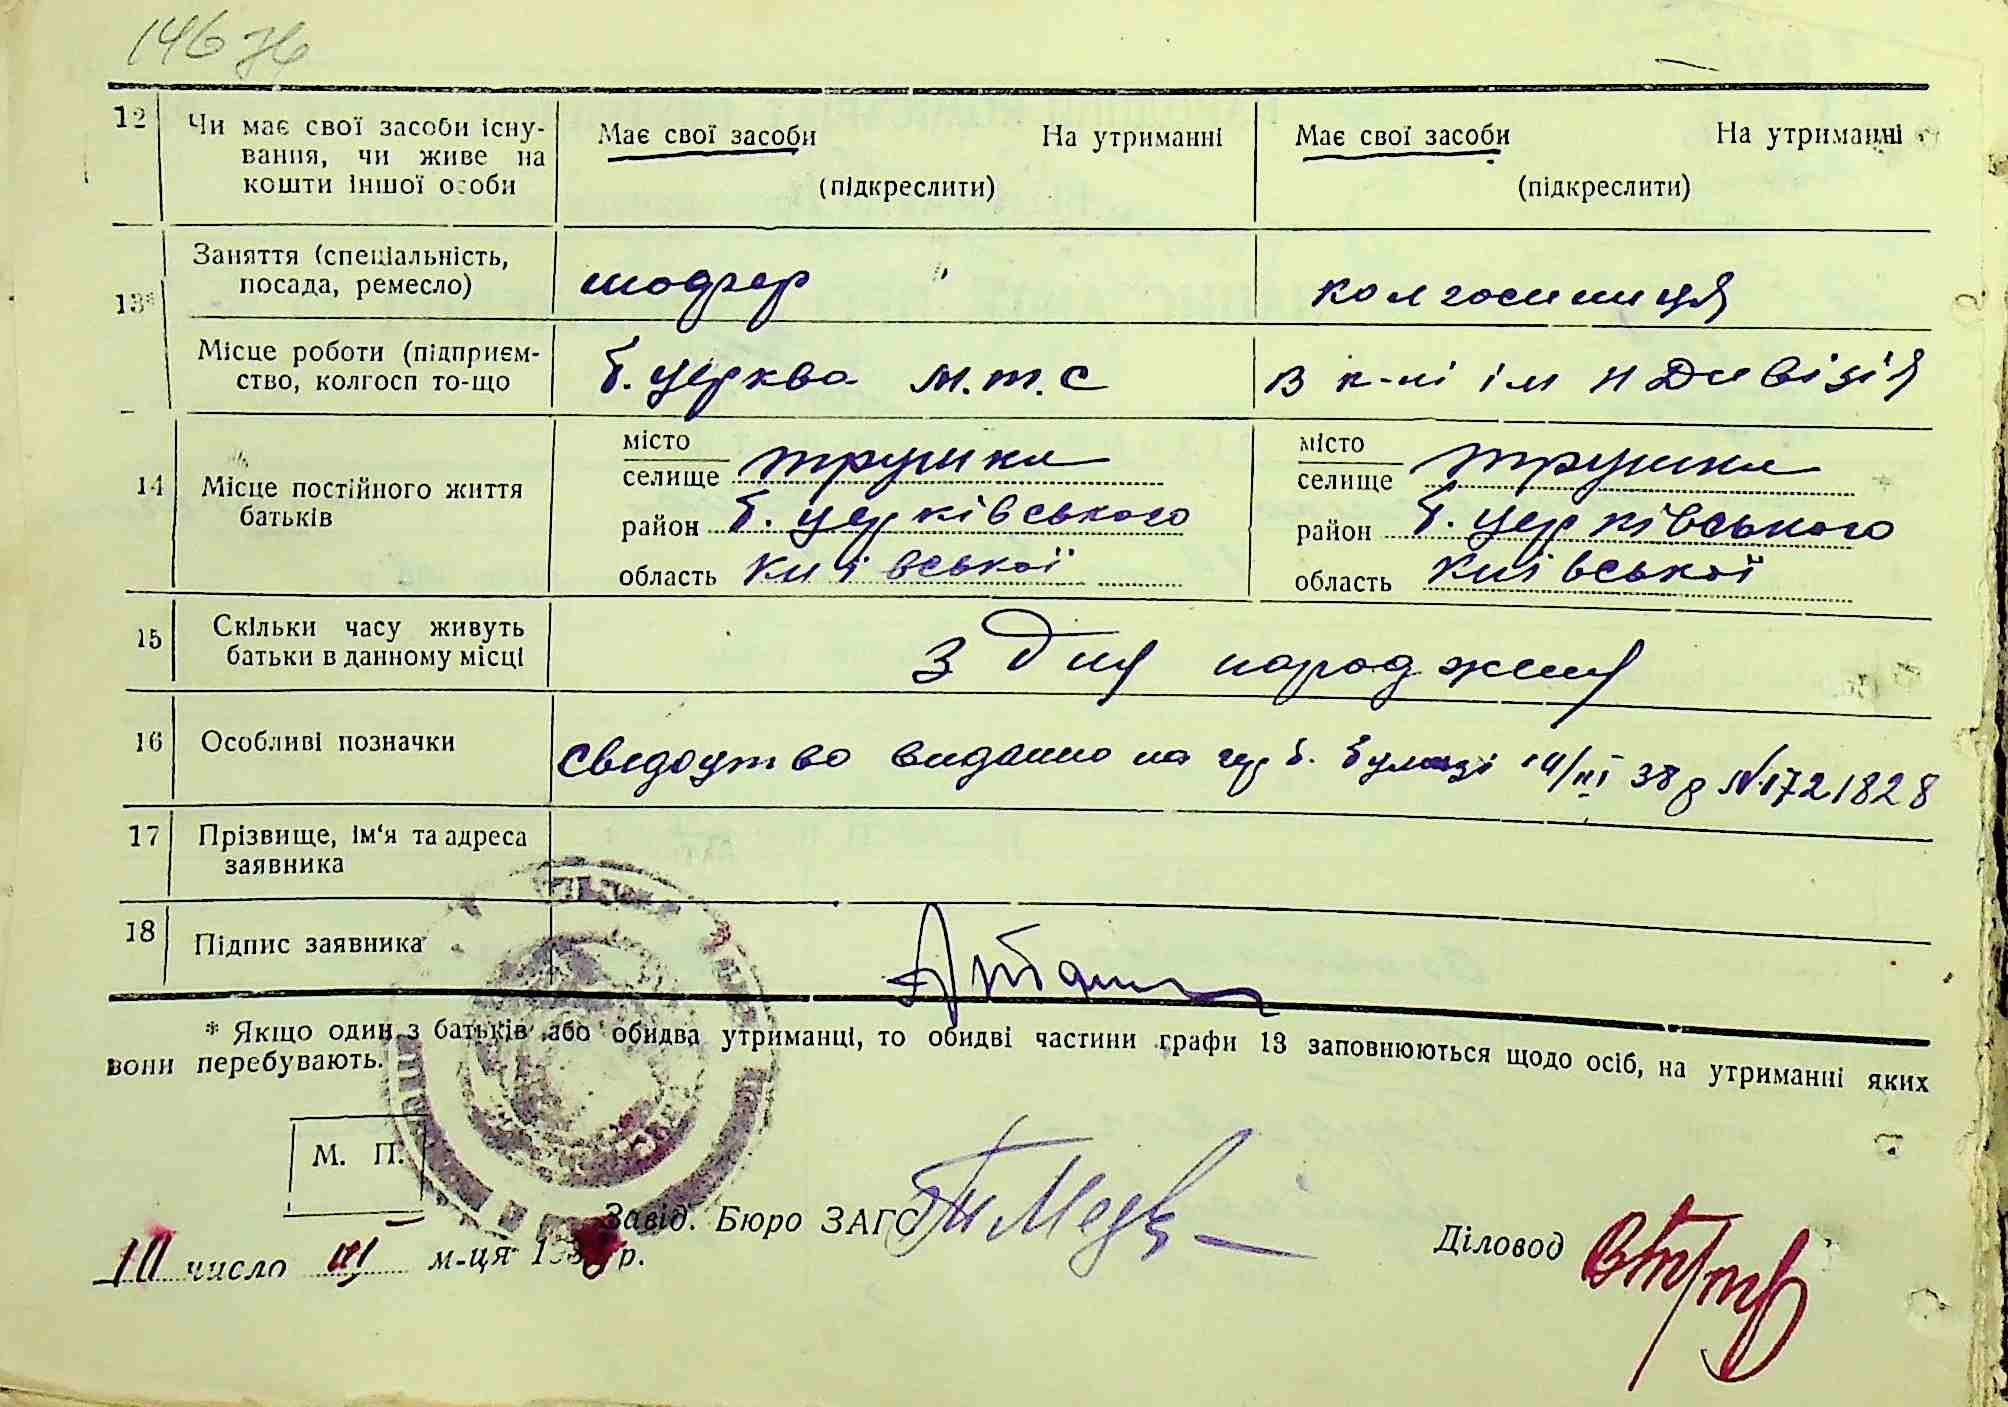 146
12 Чи має свої засоби існу- Має свої засоби На утриманні Має свої засоби На утриманні
вання, чи живе на
кошти іншої особи (підкреслити) (підкреслити)
Заняття (спеціальність,
посада, ремесло) шофер колгоспниця
13*
Місце роботи (підприєм-
ство, колгосп то-що б. церква м.т.с в к-пі ім Дивізія
14 Місце постійного життя
батьків
місто місто
селище трушки селище трушки
район б. церківського район б. церківського
область київської область київської
15 Скільки часу живуть
батьки в данному місці З дня народження
16 Особливі позначки Сведоцтво виданно на б. 38 р №1721828
17 Прізвище, ім'я та адреса
заявника
18 Підпис заявника
* Якщо один з батьків або обидва утриманці, то обидві частини графи 13 заповнюються щодо осіб, на утриманні яких
вони перебувають.
М. П.
Завід. Бюро ЗАГС Діловод
10 число III м-ця 193 р.